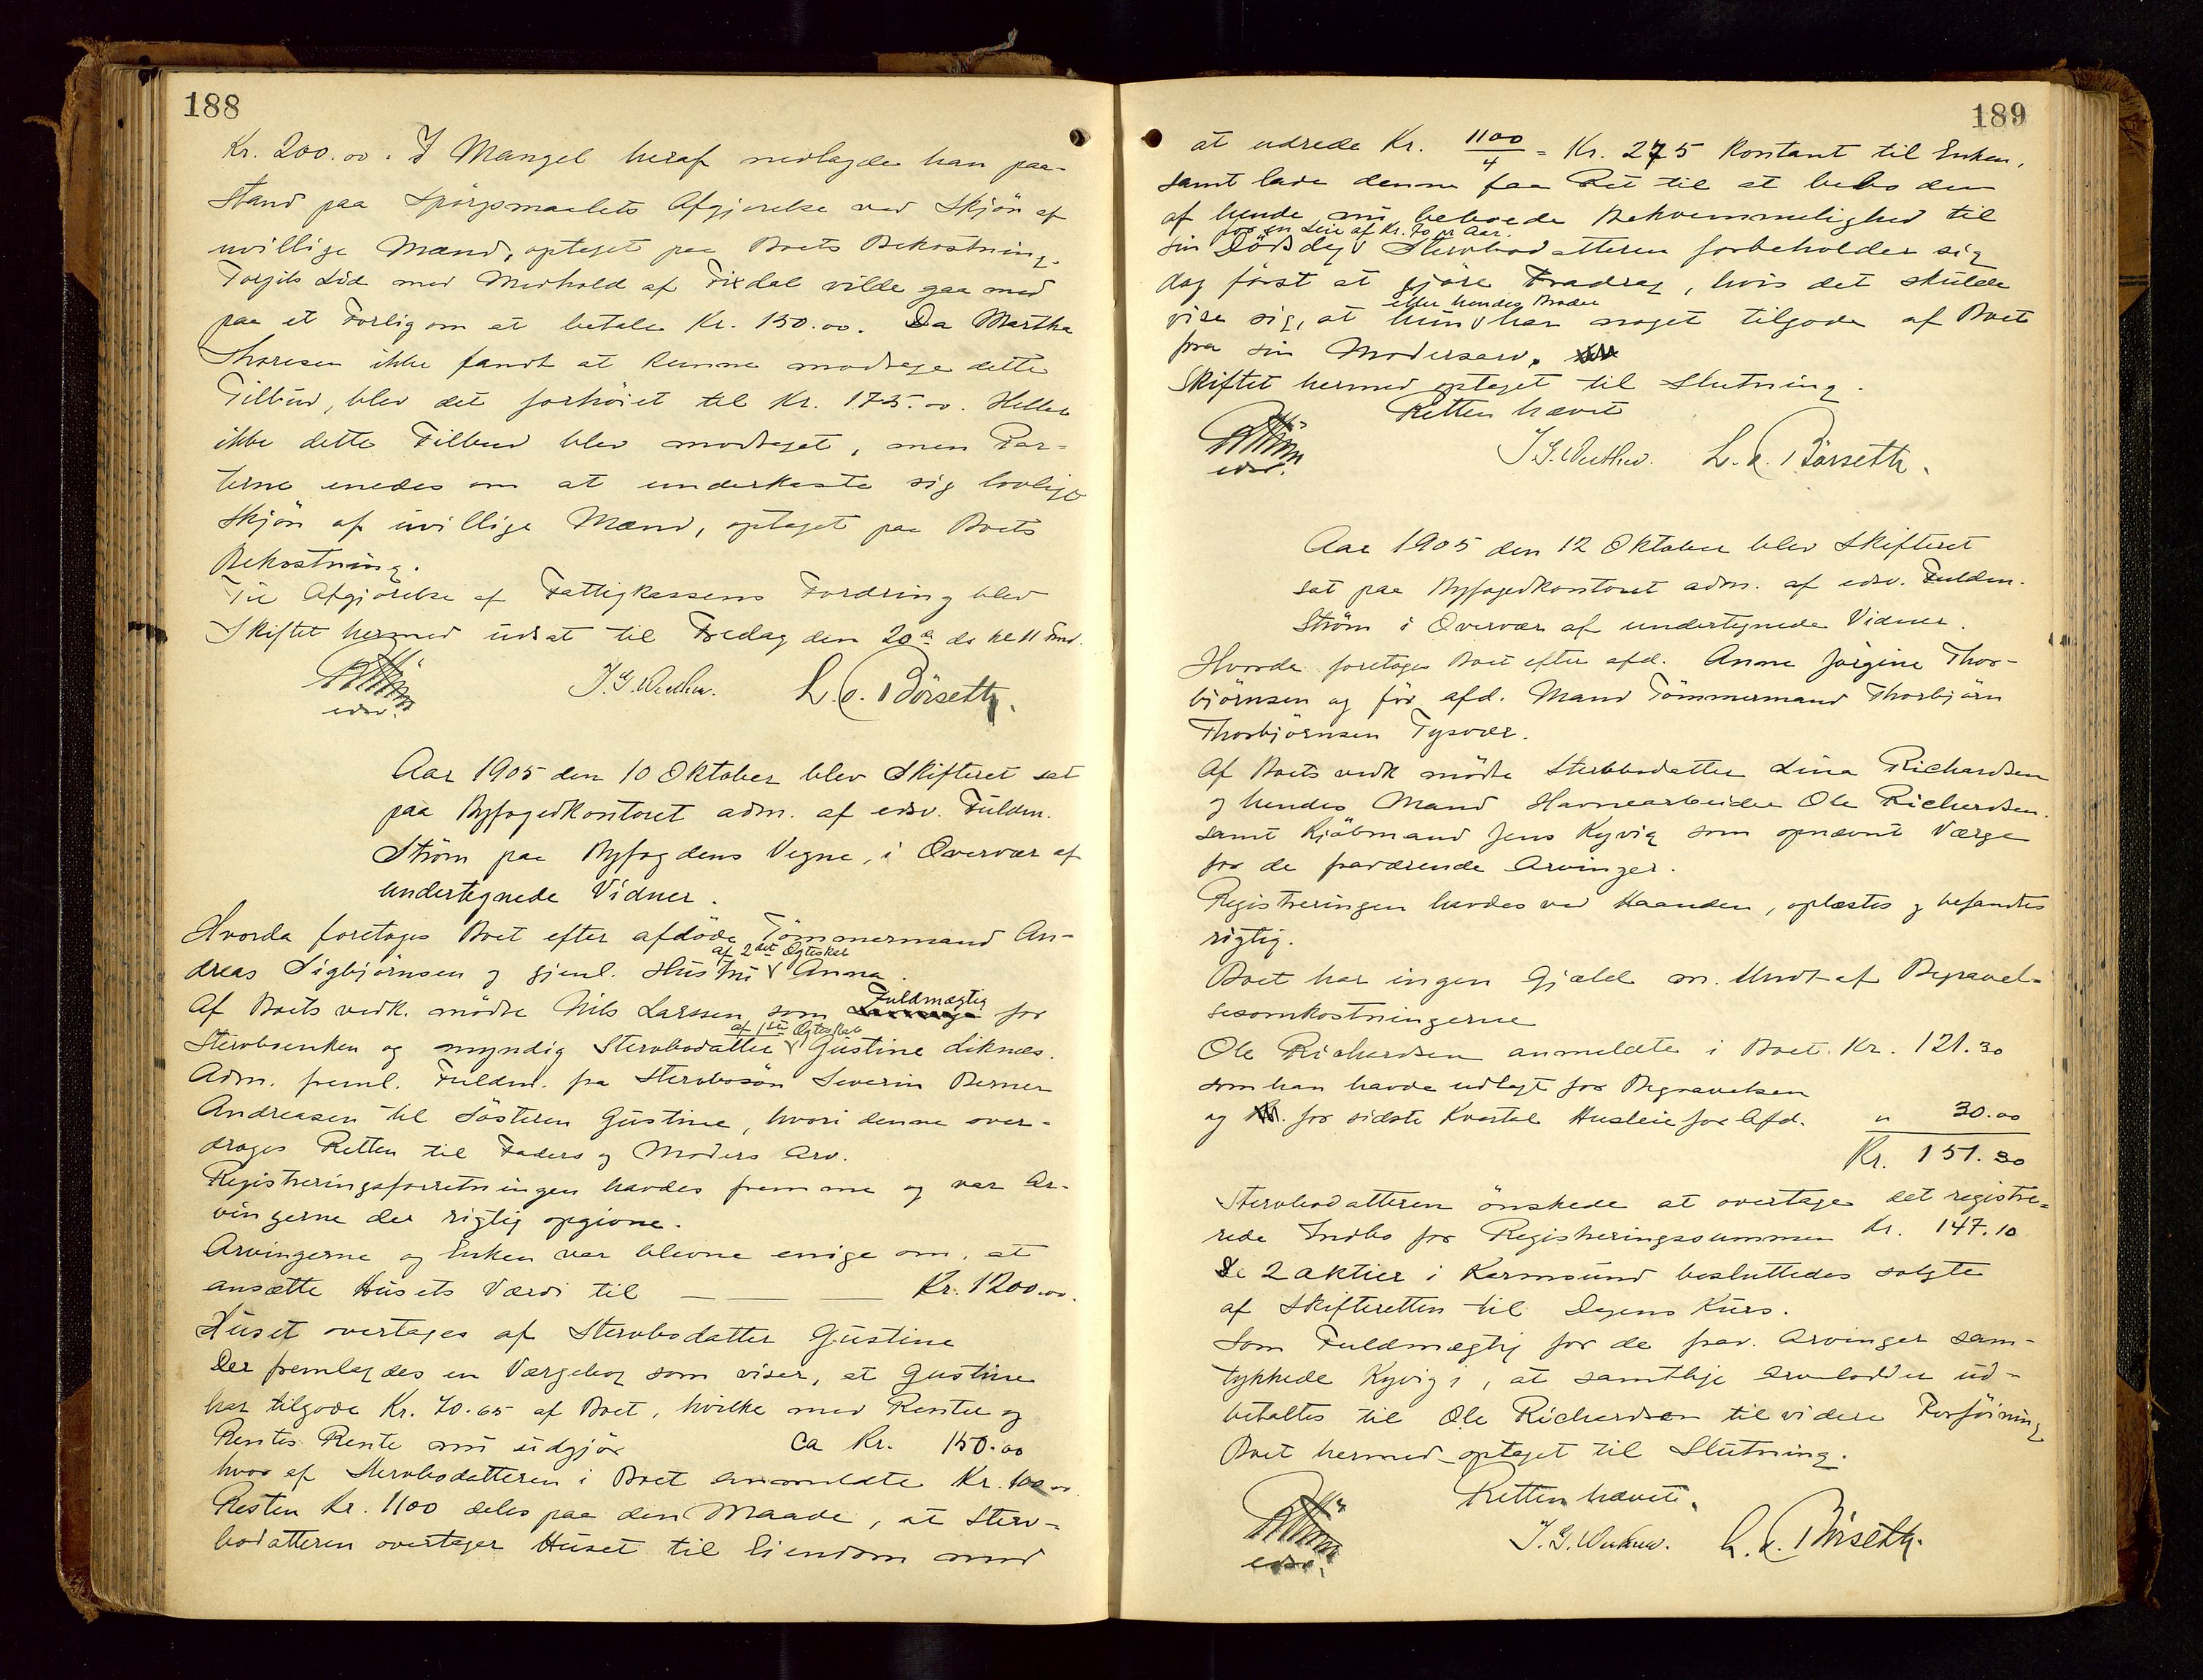 188
Kr. 200.00. I Mangel heraf nedlagde han paa-
stand paa Spörgsmaalets Afgjörelse ved Skjön af
uvillige Mænd, optaget paa Boets Bekostning.
Torgils Lid med Medhold af Tixdal vilde gaa med
paa et Forlig om at betale Kr. 150.00. Da Martha
Thoresen ikke fandt at kunne modtage dette
Tilbud, blev det forhöiet til Kr. 175.00. Heller
ikke dette Tilbud blev modtaget, men Par-
terne enedes om at underkaste sig lovligt
Skjön af uvillige Mænd, optaget paa Boets
Bekostning.
Til Afgjörelse af Fattigkassens Fordring blev
Skiftet hermed udsat til Fredag den 20de ds kl 11 Fmd.
Ström
edsv.
L. O. Börseth.
Aar 1905 den 10 Oktober blev Skifteret sat
paa Byfogedkontoret adm. af edsv. Fuldm.
Ström paa Byfogdens Vegne, i Overvær af
undertegnede Vidner.
Hvorda foretoges Boet efter afdöde Tömmermand An-
dreas Sigbjörnsen og gjenl. Hustru af 2det Ægteskab Anna.
Af Boets vedk. mödte Nils Larssen som Fuldmægtig for
Stervboenken og myndig Stervbodatter af 1ste Ægteskab Gustine Liknæs.
Adm. freml. Fuldm. fra Stervbosön Severin Berner
Andreasen til Sösteren Gustine, hvori denne over-
drages Retten til Faders og Moders Arv.
Registreringsforretningen havdes fremme og var Ar-
vingerne der rigtig opgivne.
Arvingerne og Enken var blevne enige om at
ansætte Husets Værdi til Kr. 1200.00.
Huset overtages af Stervbodatter Gustine
Der fremlagdes en Værgebog som viser, at Gustine
har tilgode Kr. 70.65 af Boet, hvilke med Renter og
Rentes Rente nu udgjör ca Kr. 150.00
hvoraf Stervbodatteren i Boet anmeldte Kr. 100.00.
Resten Kr. 1100 deles paa den Maade, at Sterv-
bodatteren overtager Huset til Eiendom mod
189
at udrede Kr. 1100/4 = Kr. 275 kontant til Enken,
samt lade denne faa Ret til at bebo den
af hende nu beboede Bekvemmelighed til
sin Dödsdag for en Leie af Kr. 70 pr Aar. Stervbodatteren forbeholder sig
dog först at gjöre Fradrag, hvis det skulde
vise sig, at hun eller hendes Broder har noget tilgode af Boet
fra sin Modersarv.
Skiftet hermed optaget til Slutning.
Retten hævet
Ström
edsv.
L. O. Börseth.
Aar 1905 den 12 Oktober blev Skifteret
sat paa Byfogedkontoret adm. af edsv. Fuldm.
Ström i Overvær af undertegnede Vidner.
Hvorda foretoges Boet efter afd. Anne Jörgine Thor-
björnsen og för afd. Mand Tömmermand Thorbjörn
Thorbjörnsen Tysvær.
Af Boets vedk mödte Stervbodatter Lina Richardsen
og hendes Mand Havnearbeider Ole Richardsen.
samt Kjöbmand Jens Kyvig som opnævnt Værge
for de fraværende Arvinger.
Registreringen havdes ved Haanden, oplæstes og befandtes
rigtig.
Boet har ingen Gjæld m. Undt. af Begravel-
sesomkostningerne
Ole Richardsen anmeldte i Boet Kr. 121.30
som han havde udlagt for Begravelsen
og for sidste Kvartal Husleie for Afd. " 30.00
Kr. 151.30
Stervbodatteren önskede at overtage det registre-
rede Indbo for Registreringssummen Kr. 147.10
De 2 Aktier i Karmsund besluttedes solgte
af Skifteretten til Dagens Kurs.
Som Fuldmægtig for de frav. Arvinger sam-
tykkede Kyvig i, at samtlige Arvelodder ud-
betaltes til Ole Richardsen til videre Forföining
Boet hermed optaget til Slutning.
Retten hævet.
Ström
edsv.
L. O. Börseth.